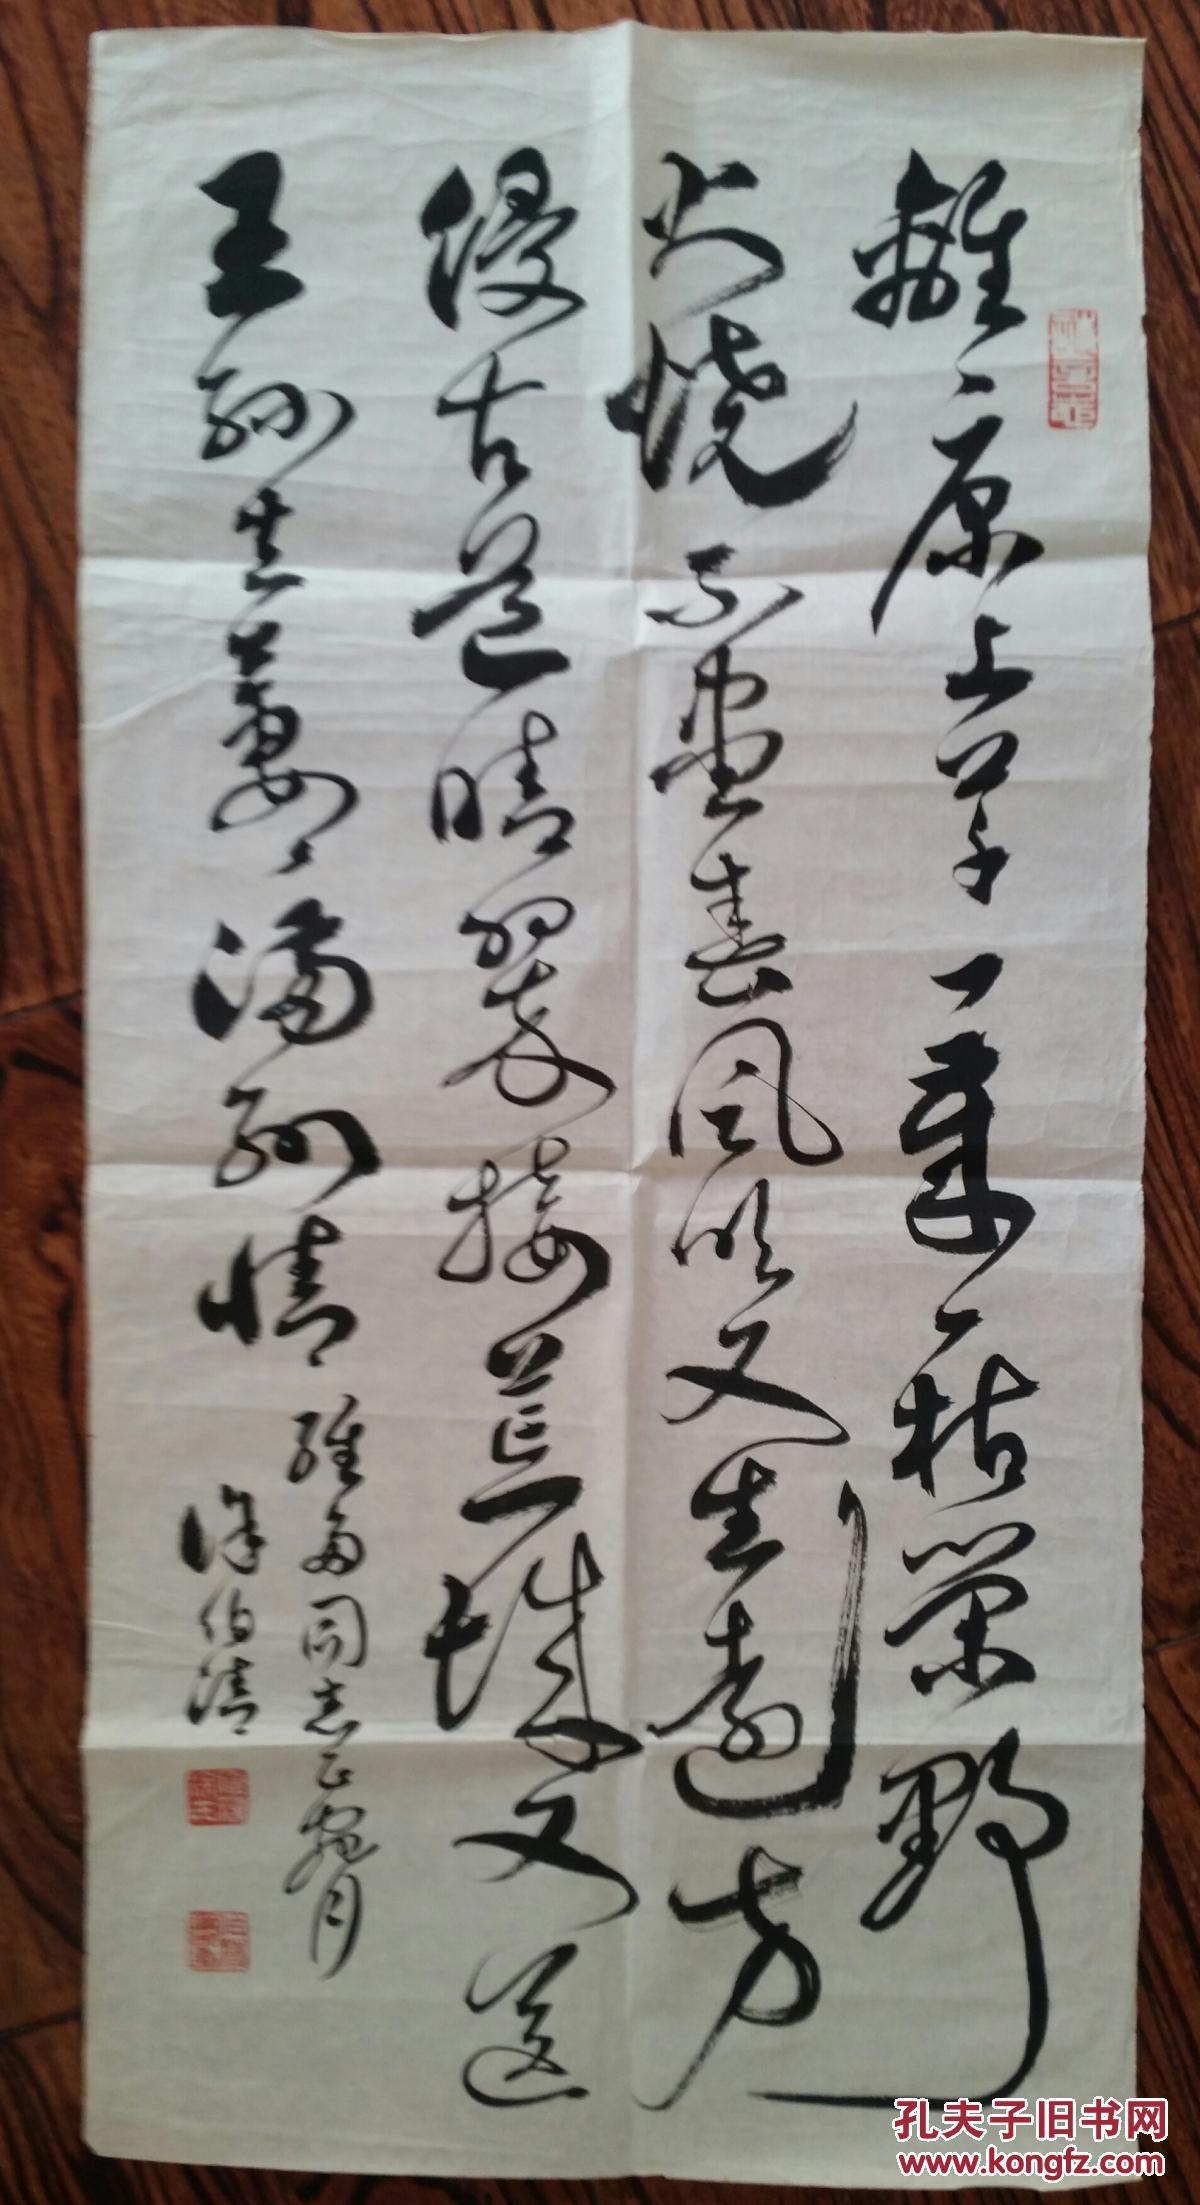 離〻原上草一歲一枯榮野
火燒不盡春風吹又生遠芳
侵古道晴翠接荒城又送
王孫去萋〻滿別情
維同志正腕
徐伯清
孔夫子旧书网
www.kongfz.com